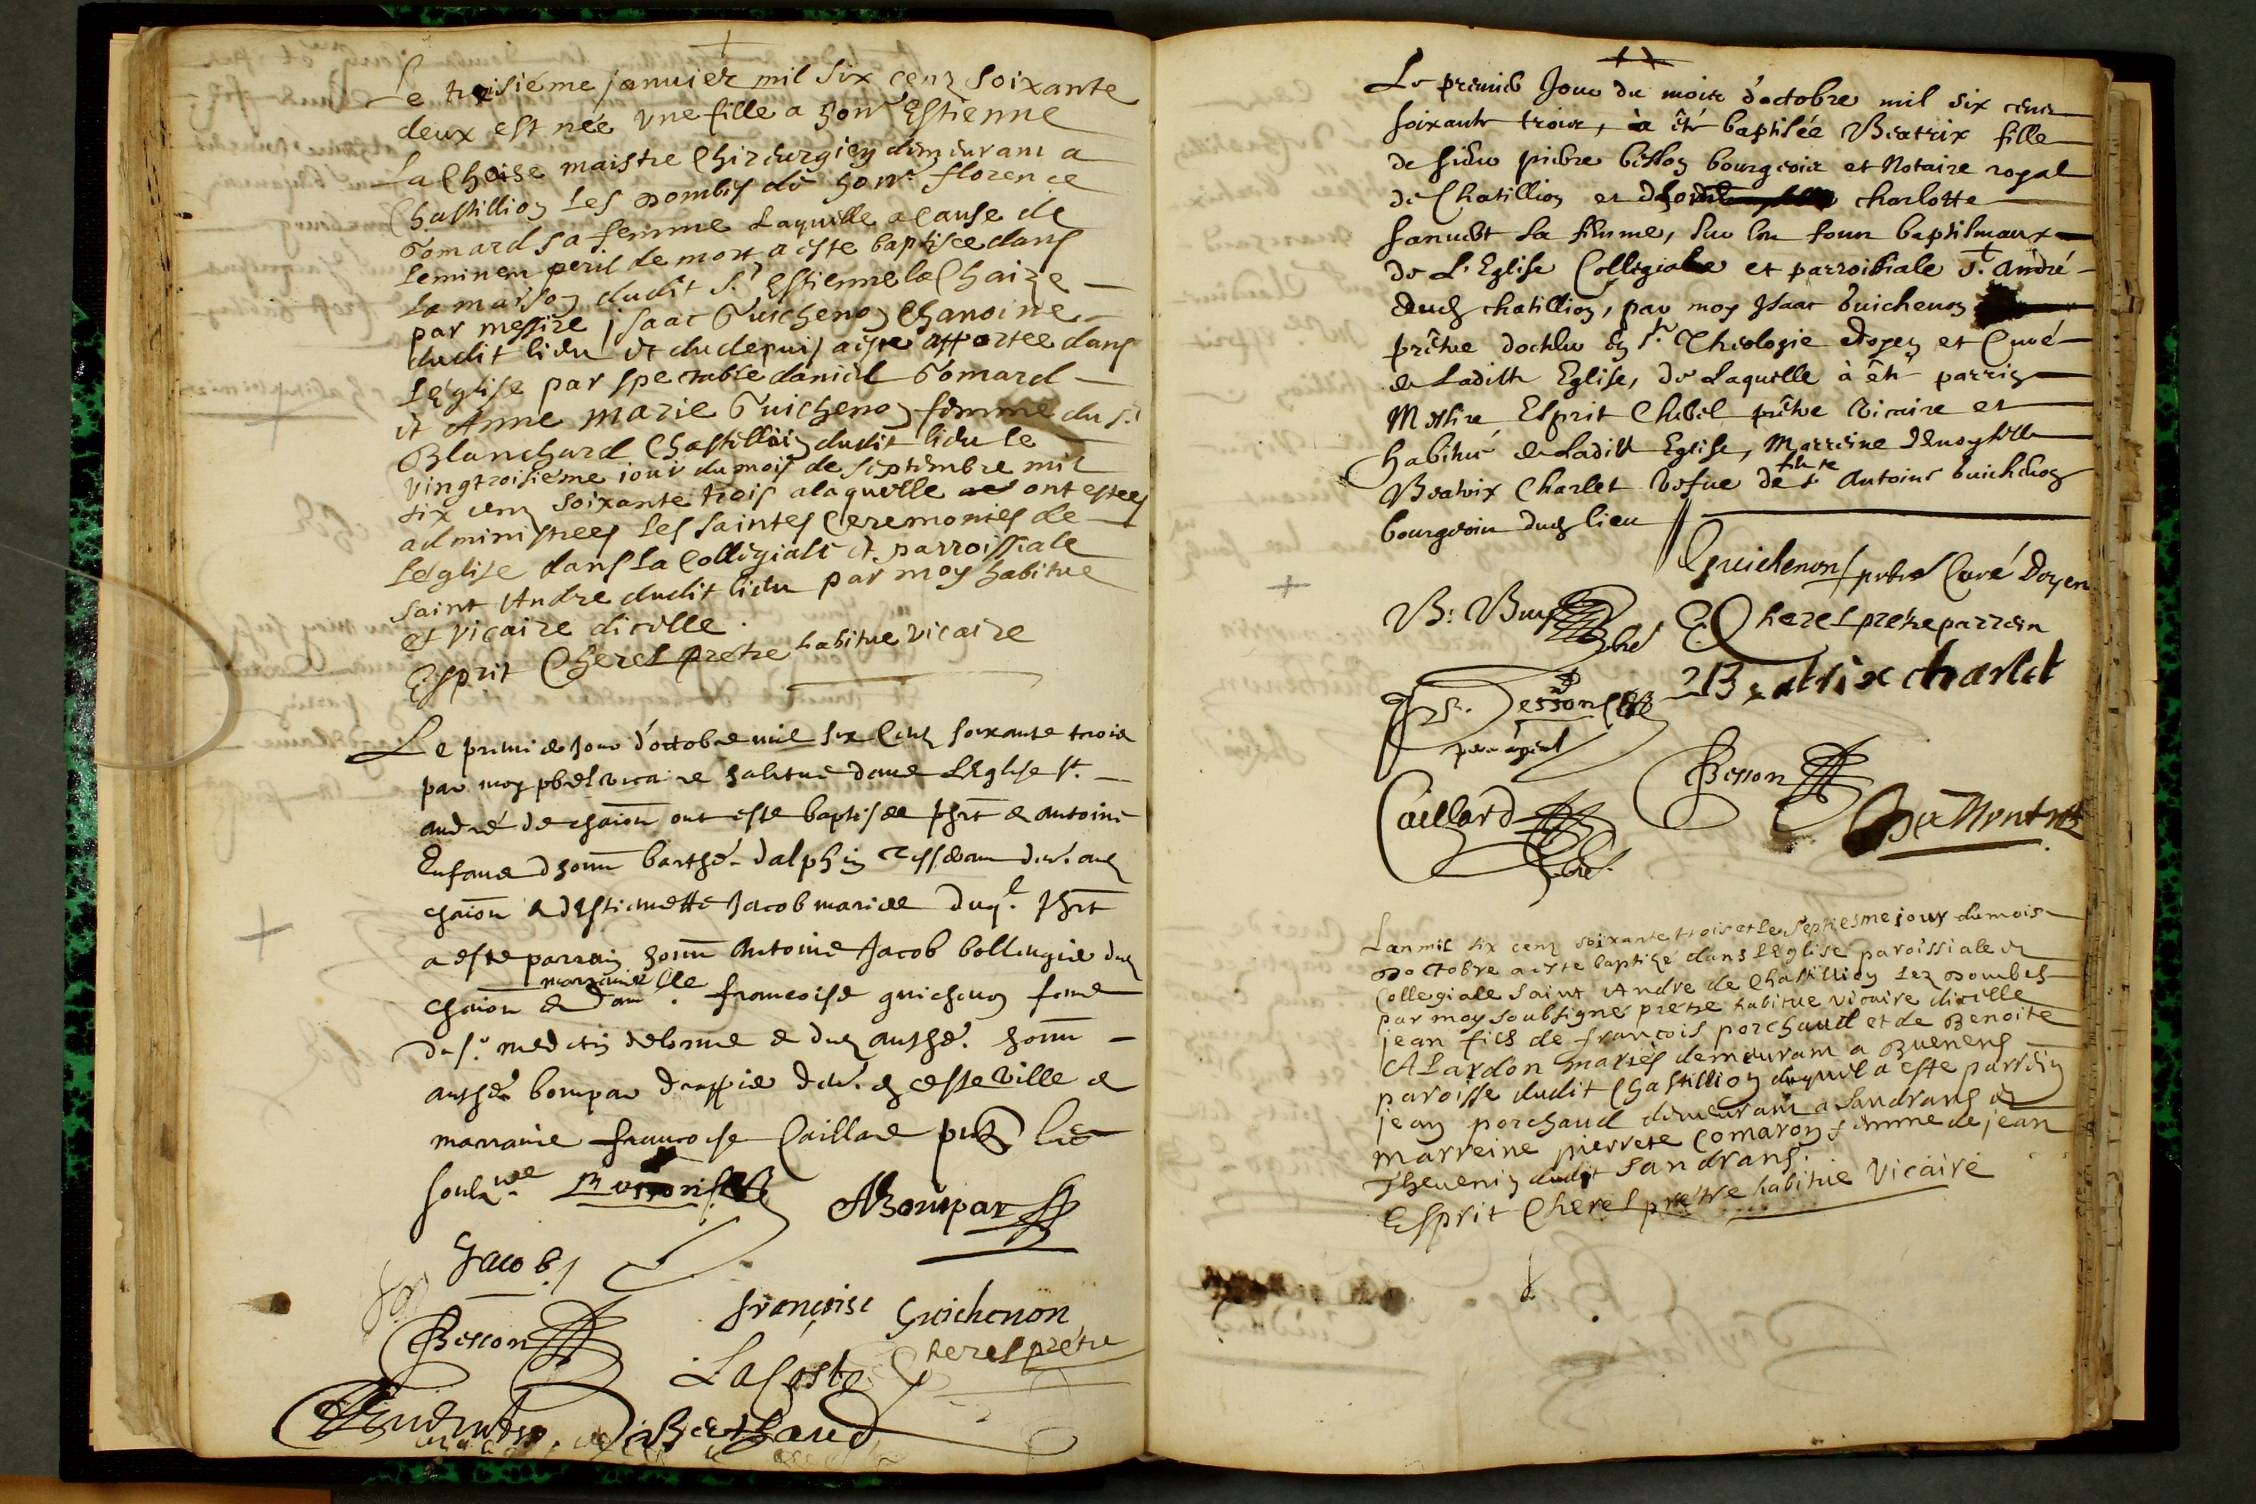 Le troisiéme janvier mil six cenz soixante
deux est née une fille a honr Estienne
La Chaise maistre Chirurgien demeurant a
Chastillion les Dombes de honr florence
Gomard sa femme Laquelle a cause de
leminen peril de mort a este baptisee dans
La maison dudit Sr Estienne la Chaize
par messire isaac Guichenon Chanoine
dudit lieu et du depuis a este apportee dans
L'eglise par spectable daniel Gomard
et Anne marie Guichenon femme du sr
Blanchard Chastillion dudit lieu le
vingtroisieme iour du mois de septembre mil
six cenz soixante trois a laquelle ont estees
administrees les saintes Ceremonies de
l'eglise dans la Collegiale et parroissiale
saint Andre dudit lieu par moy habitue
et vicaire dicelle.
Esprit Cherel prêtre habitue vicaire
Le premier Jour d'octobre mil six Cenz soixante trois
par moy pbre vicaire habitué dans L'Eglise St.
André de chaion ont este baptisee et antoine
Enfans d honn barthé. dalphin
chaion & d'Estiennette Jacob mariee duql.
a este parrain honn Antoine Jacob bollengier
chaion & marraine dam.lle francoise guichenon fame
du sr. medecin delorme & honn
anthe bompar drappier ceste ville &
marraine francoise Caillard
Besson
ABompar
Jacob
françoise Guichenon
Besson
LaCoste
Cherel prêtre
Berthaud
Le premier Jour du mois d'octobre mil six cens
soixante trois, à êté baptisée Beatrix fille
de sieur pierre besson bourgeois et Notaire royal
de Chatillion et charlotte
la femme, sur les fonts baptismaux
de L'Eglise Collegiale et parroissiale St. André
dud chatillion, par moy Isaac Guichenon
prêtre docteur en Ste Theologie doyen et Curé
de Laditte Eglise, de Laquelle à êté parrin
Messire Esprit Cherel prêtre Vicaire et
habitué de Laditte Eglise, Marreine demoyselle
Beatrix Charlet vefve de feu Sr Antoine Guichenon
bourgeois dud lieu
Guichenon prtre Curé Doyen
E Cherel prêtre parrein
Beatrix charlet
Besson
Caillard
Lan mil six cenz soixante trois et le septiesme jour du mois
Doctobre a este baptizé dans L'Eglise paroissiale et
Collegiale saint Andre de Chastillion Lez Dombes
par moy soubsigné prêtre habitue vicaire dicelle
jean fils de francois porchaud et de Benoite
Alardon maries demeurant a Buenens
paroisse dudit Chastillion duquel a este parrein
jean porchaud demeurant a Sandrans et
marreine pierrete Comaron femme de jean
Thevenin dudit Sandrans.
Esprit Cherel prêtre habitue Vicaire